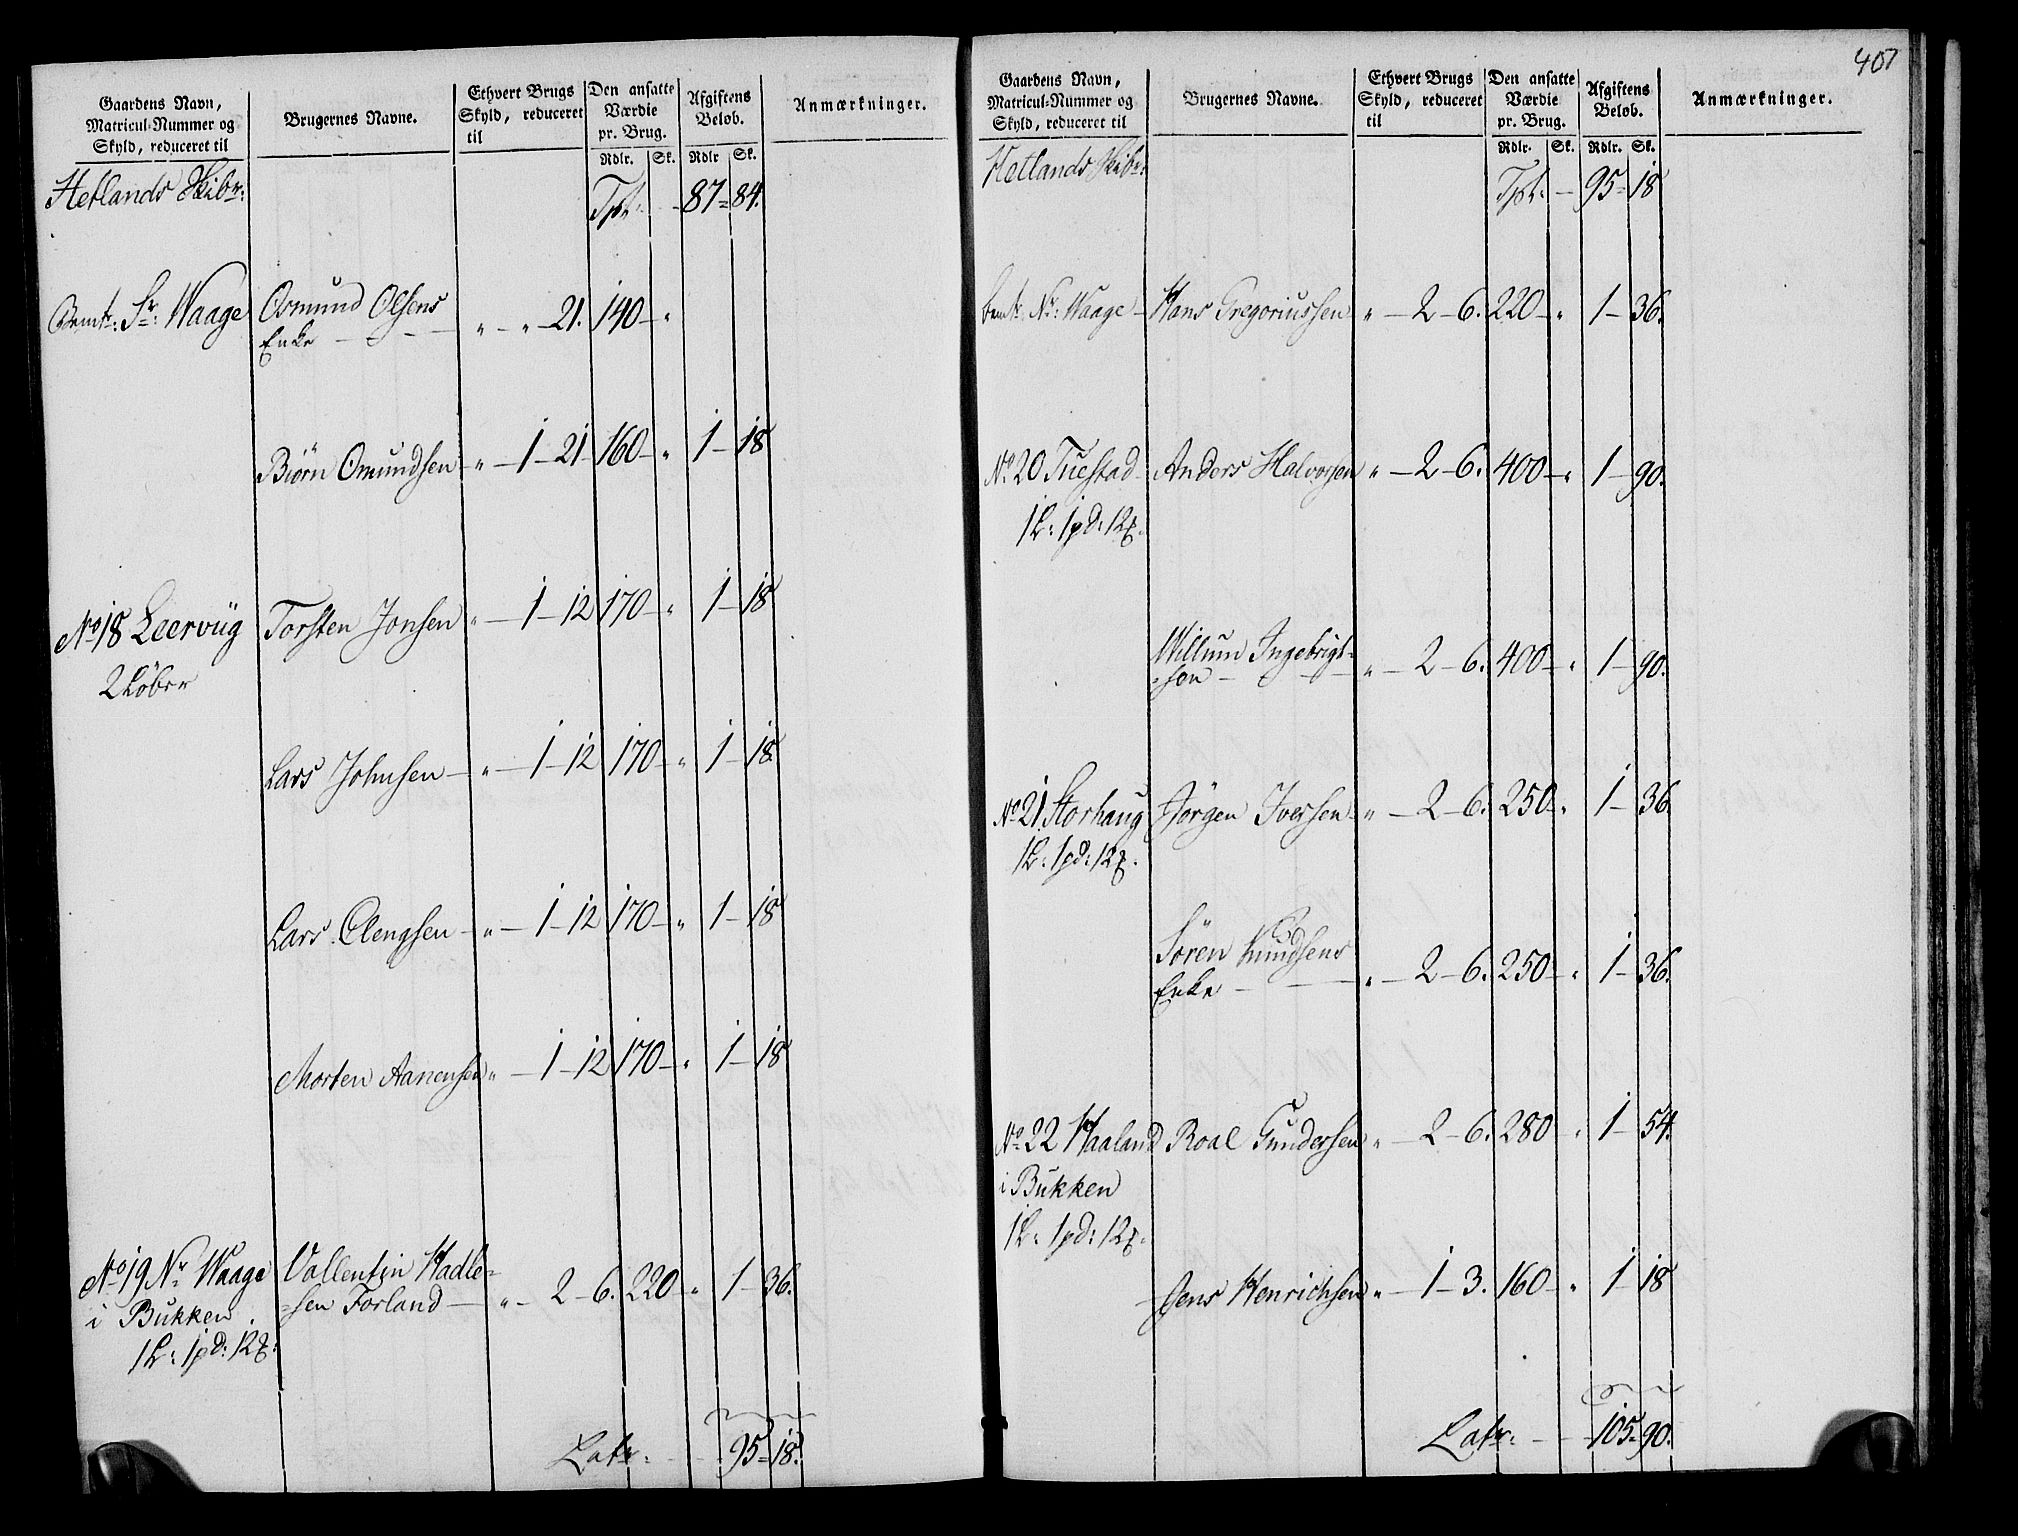 407
Gaardens Navn,
Matricul-Nummer og
Skyld, reduceret til
Brugernes Navne.
Ethvert Brugs
Skyld, reduceret
til
Den ansatte
Værdie
pr. Brug.
Rdlr. Sk.
Afgiftens
Beløb.
Rdlr Sk.
Anmærkninger.
Hetlands Skibr: Tpt: - 87 = 84.
Sr: Waage Osmund Olsens
Enke — — " — " — 21. 140 — "
Biørn Omundsen — " — 1 — 21 160 — " 1 — 18
No 18 Leervüg Torsten Jonsen " — 1 — 12 170 — " 1 — 18
2 Løber
Lars Johnsen — " — 1 — 12 170 — " 1 — 18.
Lars Clengsen — " — 1 — 12 170 — " 1 — 18
Morten Aanensen " — 1 — 12 170 — " 1 — 18
No 19 Nr Waage Vallentin Hadle=
i Bukken =sen Forland — " — 2 — 6. 220 — " 1 — 36.
1 L: 1 pd: 12
Latr: - - 95 = 18.
Gaardens Navn,
Matricul-Nummer og
Skyld, reduceret til
Brugernes Navne.
Ethvert Brugs
Skyld, reduceret
til
Den ansatte
Værdie
pr. Brug.
Rdlr. Sk.
Afgiftens
Beløb.
Rdlr. Sk.
Anmærkninger.
Hetlands Skibr: Tpt: — 95 = 18
Nr: Waage — Hans Gregoriussen " — 2 — 6. 220 — " 1 — 36.
No 20 Tuestad Anders Halvorsen " — 2 — 6. 400 — " 1 — 90.
1 L: 1 pd: 12
Willum Ingebrigt=
=sen — — " — 2 — 6. 400 — " 1 — 90.
No 21 Storhaug Jørgen Iversen — " — 2 — 6. 250 " 1 — 36.
1 L: 1 pd: 12
Sören Knudsens
Enke — — " — 2 — 6. 250 — " 1 — 36.
No 22 Haaland Roal Gundersen " — 2 — 6. 280 " 1 — 54.
i Bukken
1 L: 1 pd: 12
Jens Henrichsen " — 1 — 3. 160 — " 1 — 18
Latr: - - 105 = 90.